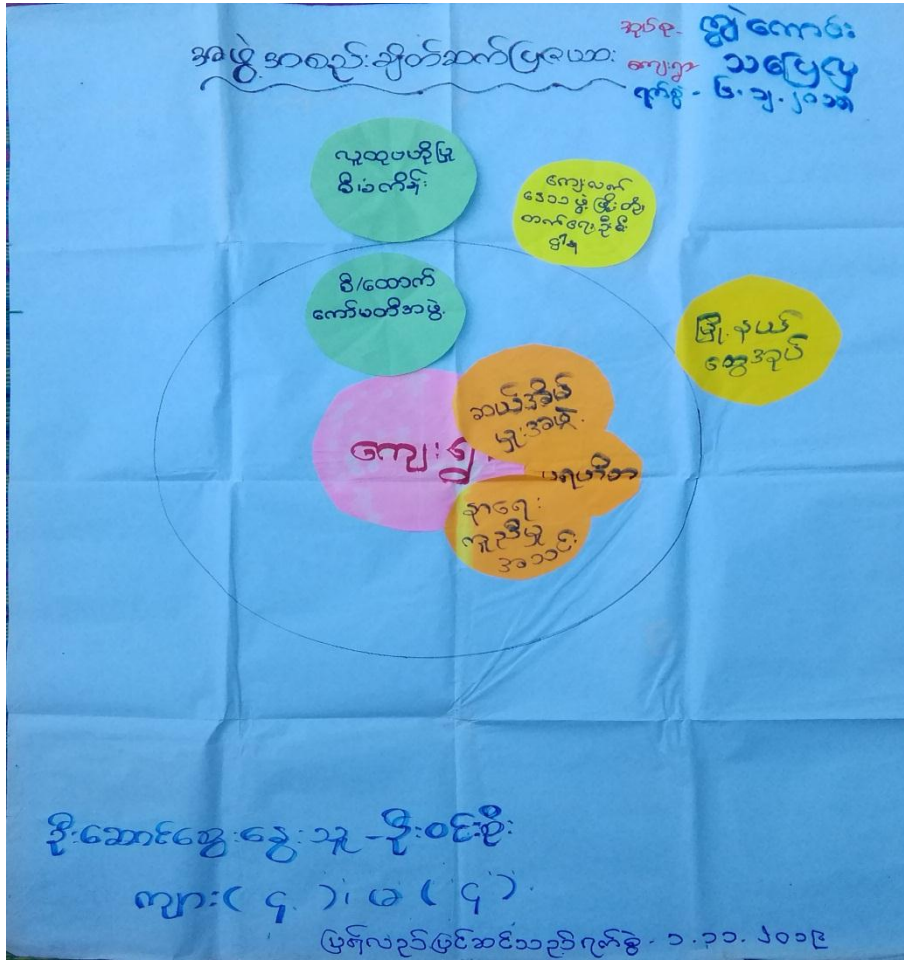 အဖွဲ့အစည်းချိတ်ဆက်ပြဇယား
အုပ်စု- ကျွဲကောင်း
ကျေးရွာ သပြေလှ
ရက်စွဲ -
လူထုဗဟိုပြု
စီမံကိန်း
ကျေးလက်
ဒေသဖွံ့ဖြိုးတိုး
တက်ရေးဦးစီး
ဌာန
စီ/ထောက်
ကော်မတီအဖွဲ့
မြို့နယ်
ထွေအုပ်
ဆယ်အိမ်
မှူးအဖွဲ့
ကျေးရွာ
ပရဟိတ
နာရေး
ကူညီမှု
အသင်း
ဦးဆောင်ဆွေးနွေးသူ - ဦးဝင်းစိုး
ကျား( ၄ )၊ မ ( ၄ )
ပြန်လည်ပြင်ဆင်သည့်ရက်စွဲ - ၁.၁၁.၂၀၁၉